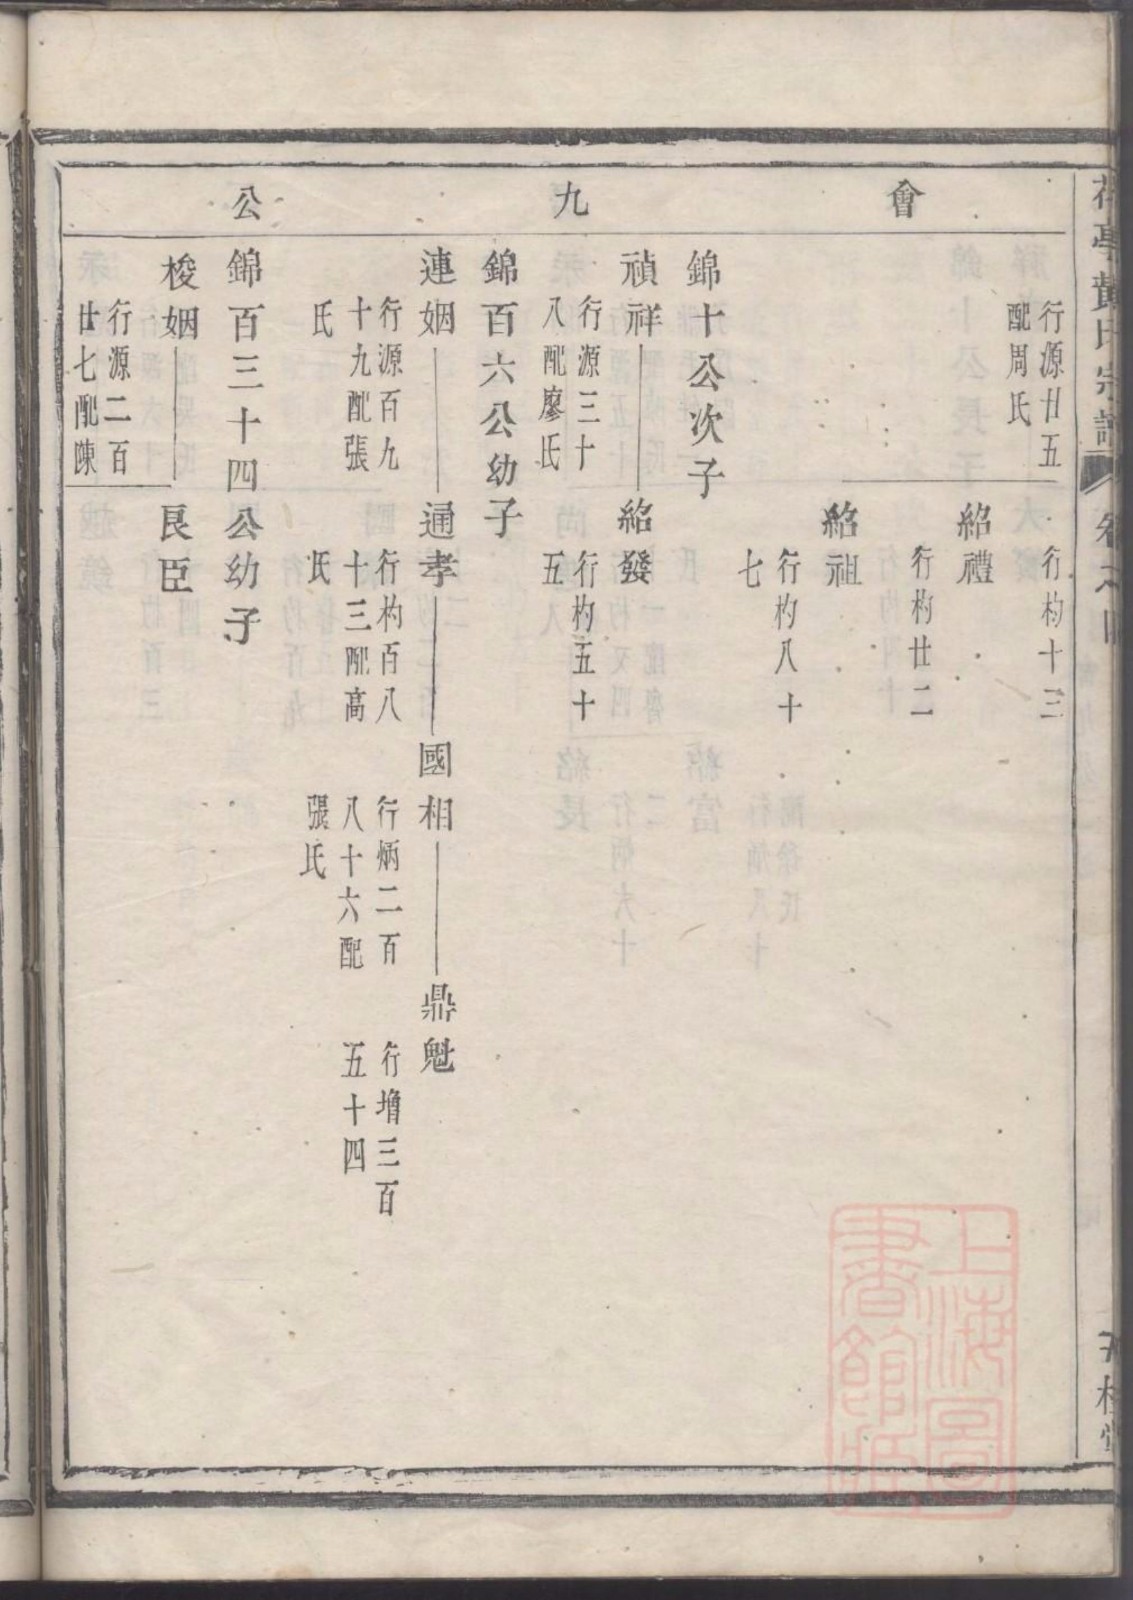 會九公
行源廿五
配周氏
行杓十三
紹禮
行杓廿二
紹祖
行杓八十
七
錦十公次子
禎祥
行源三十
八配廖氏
紹發
行杓五十
五
錦百六公幼子
連姻
行源百九
十九配張
氏
通孝
行杓百八
十三配高
氏
國相
行炳二百
八十六配
張氏
鼎魁
行增三百
五十四
錦百三十四公幼子
梭姻
行源二百
廿七配陳
良臣
上海圖
書館藏